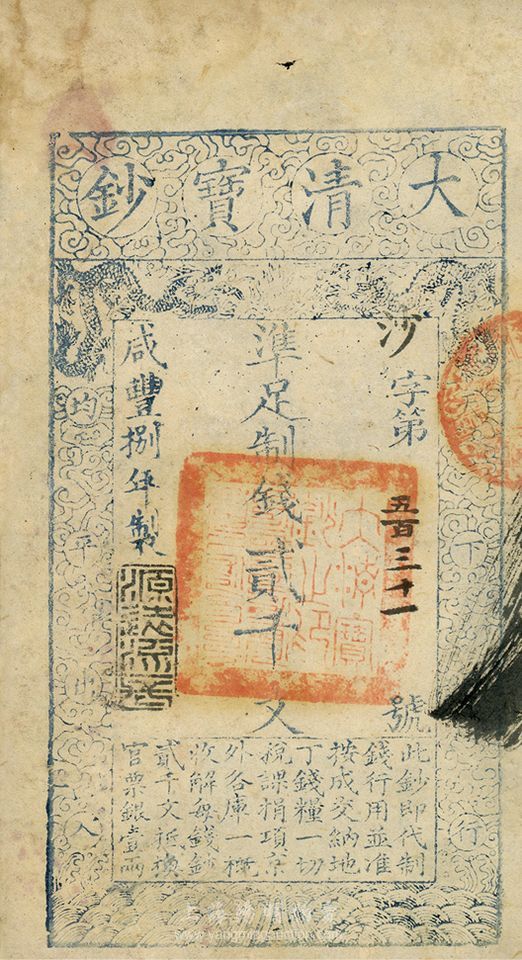 大清寶鈔
沙字第五百三十一號
準足制錢貳千文
咸豐捌年製
此鈔即代制
錢行用並准
按成交納地
丁錢糧一切
稅課捐項京
外各庫一概
收解每錢鈔
貳千文抵換
官票銀壹兩
均平
下
行